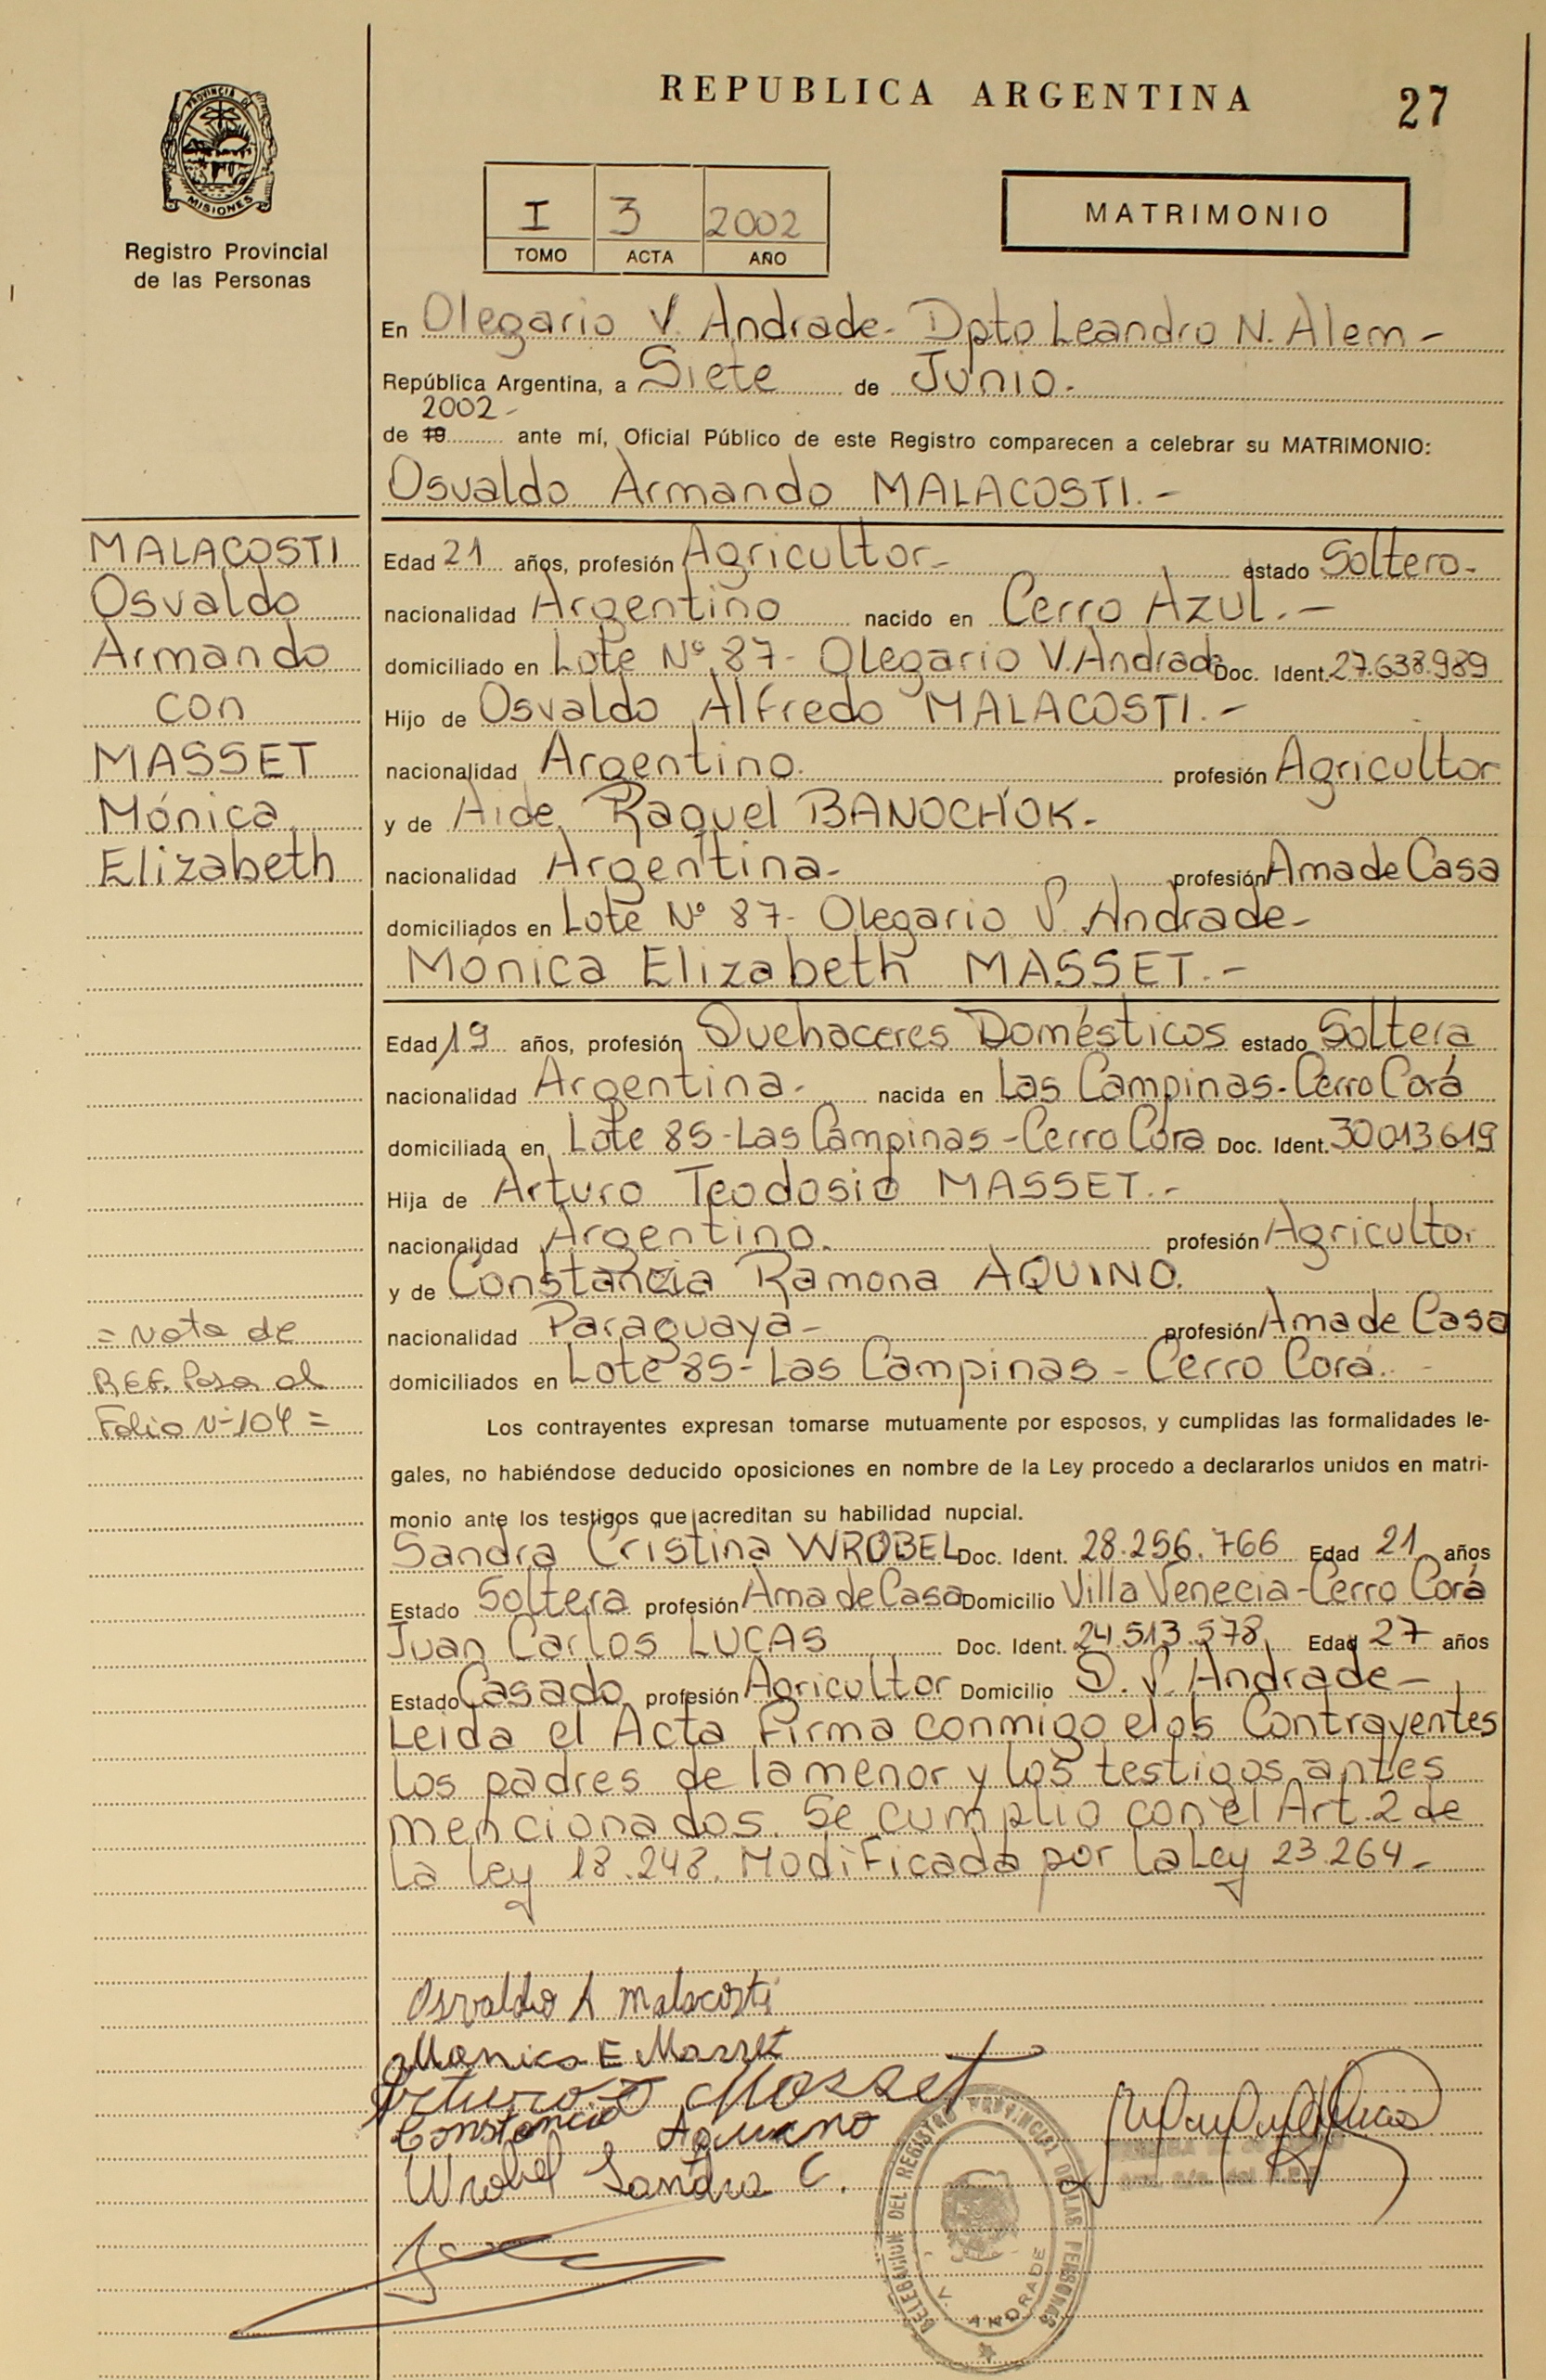 REPUBLICA ARGENTINA
27
PROVINCIA DE
MISIONES
Registro Provincial
de las Personas
I 3 2002
TOMO ACTA AÑO
MATRIMONIO
En Olegario V. Andrade- Dpto Leandro N. Alem -
República Argentina, a Siete de Junio.
2002-
de 19 ante mí, Oficial Público de este Registro comparecen a celebrar su MATRIMONIO:
Osvaldo Armando MALACOSTI.-
MALACOSTI
Osvaldo
Armando
con
MASSET
Mónica
Elizabeth
Edad 21 años, profesión Agricultor- estado Soltero-
nacionalidad Argentino nacido en Cerro Azul.-
domiciliado en Lote Nº 87- Olegario V. Andrade Doc. Ident. 27.638.989
Hijo de Osvaldo Alfredo MALACOSTI.-
nacionalidad Argentino. profesión Agricultor
y de Aide Raquel BANOCHOK-
nacionalidad Argentina- profesión Ama de Casa
domiciliados en Lote Nº 87- Olegario V. Andrade-
Mónica Elizabeth MASSET.-
Edad 19 años, profesión Quehaceres Domésticos estado Soltera
nacionalidad Argentina- nacida en Las Campinas-Cerro Corá
domiciliada en Lote 85-Las Campinas-Cerro Cora Doc. Ident. 30013619
Hija de Arturo Teodosio MASSET.-
nacionalidad Argentino. profesión Agricultor
y de Constancia Ramona AQUINO.
nacionalidad Paraguaya- profesión Ama de Casa
domiciliados en Lote 85- Las Campinas - Cerro Corá.-
= Nota de
REF. Pasa al
Folio Nº 104 =
Los contrayentes expresan tomarse mutuamente por esposos, y cumplidas las formalidades le-
gales, no habiéndose deducido oposiciones en nombre de la Ley procedo a declararlos unidos en matri-
monio ante los testigos que acreditan su habilidad nupcial.
Sandra Cristina WROBEL Doc. Ident. 28.256.766 Edad 21 años
Estado Soltera profesión Ama de Casa Domicilio Villa Venecia-Cerro Corá
Juan Carlos LUCAS Doc. Ident. 24.513.578 Edad 27 años
Estado Casado profesión Agricultor Domicilio O. V. Andrade-
Leida el Acta Firma conmigo el os Contrayentes
los padres de la menor y los testigos antes
mencionados. Se cumplio con el Art. 2 de
la ley 18.248. Modificada por la Ley 23.264-
Osvaldo A Malacosti
Monica E Masset
Arturo T Masset
Constancia Aquino
Wrobel Sandra C.
DELEGACION DEL REGISTRO PROVINCIAL DE LAS PERSONAS
V. ANDRADE